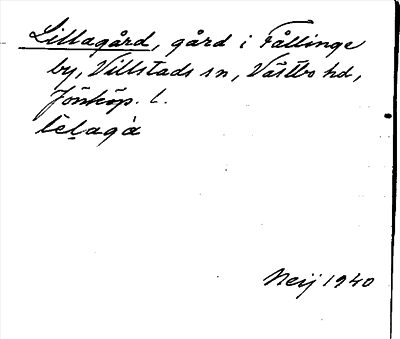 Lillagård, gård i Fållinge
by, Villstads sn, Västbo hd,
Jönköp. l.
Neij 1940